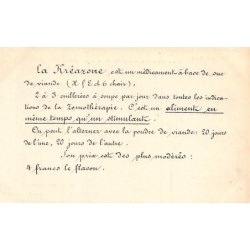 La Kréazone est un médicament à base de suc
de viande
2 à 3 cuillerées à soupe par jour dans toutes les indica-
tions de la Zomothérapie. C'est un aliment en
même temps qu'un stimulant.
On peut l'alterner avec la poudre de viande: 20 jours
de l'une, 20 jours de l'autre.
Son prix est des plus modérés:
4 francs le flacon.